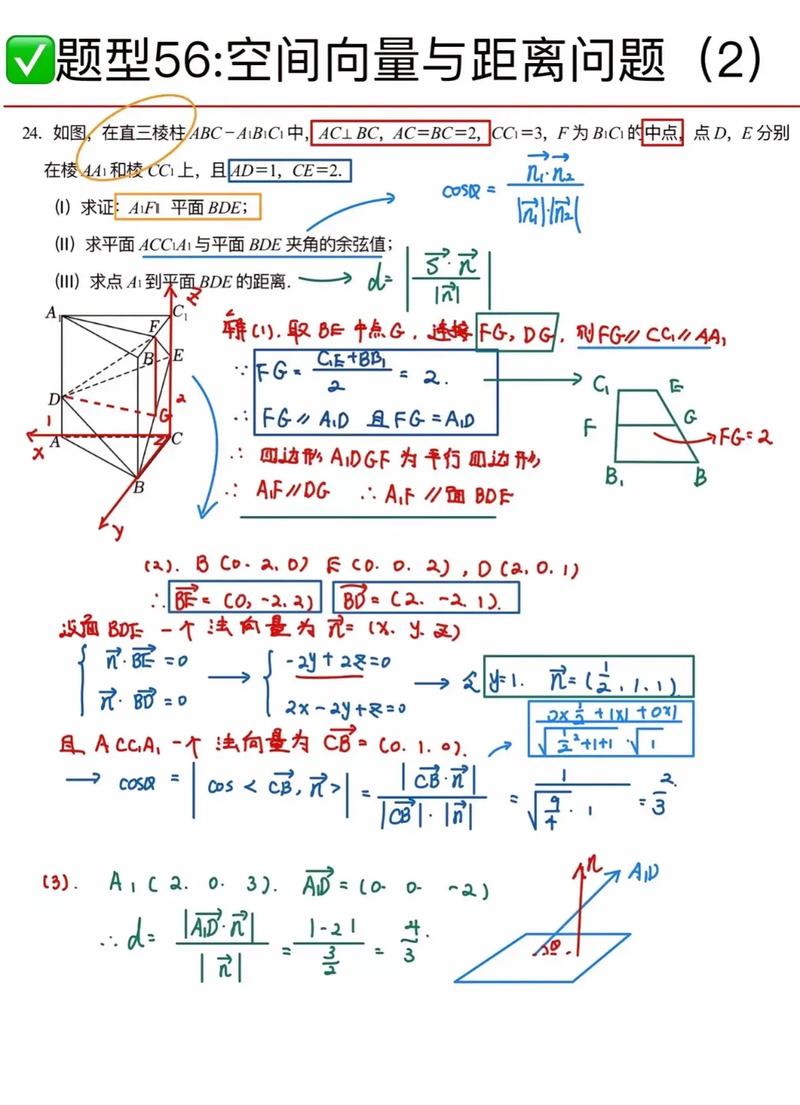 ✅题型56:空间向量与距离问题（2）
24. 如图，在直三棱柱 ABC－A₁B₁C₁ 中，AC⊥BC，AC=BC=2，CC₁=3，F 为 B₁C₁ 的中点，点 D，E 分别
在棱 AA₁ 和棱 CC₁ 上，且 AD=1，CE=2.
(I) 求证：A₁F∥ 平面 BDE；
cosα = n₁·n₂ / |n₁|·|n₂|
(II) 求平面 ACC₁A₁ 与平面 BDE 夹角的余弦值；
(III) 求点 A₁ 到平面 BDE 的距离.
d= |s·n / |n||
A₁ C₁ Z
F
B₁ E
D
1 G 2
x A C
B
y
解(1). 取 BE 中点 G，连接 FG, DG，则 FG∥CC₁∥AA₁
∵ FG = (C₁E+BB₁)/2 = 2.
∴ FG∥A₁D 且 FG=A₁D
∴ 四边形 A₁DGF 为平行四边形
∴ A₁F∥DG ∴ A₁F∥面 BDE
C₁ E
F G
FG=2
B₁ B
(2). B(0. 2, 0) E(0. 0. 2), D(2, 0. 1)
∴ BE=(0, -2, 2) BD=(2. -2. 1).
设面 BDE 一个法向量为 n=(x. y. z)
{ n·BE=0 → { -2y+2z=0 → 令 y=1. n=(1/2, 1, 1)
n·BD=0 2x-2y+z=0
0×1/2+1×1+0×1 / √(1/2²+1+1)·√1
且 ACC₁A₁ 一个法向量为 CB=(0. 1. 0).
→ cosα = |cos<CB, n>| = |CB·n| / |CB|·|n| = 1 / √(9/4)·1 = 2/3.
(3). A₁(2. 0. 3). A₁D=(0. 0. -2)
∴ d= |A₁D·n| / |n| = |-2| / (3/2) = 4/3.
n A₁D
θ